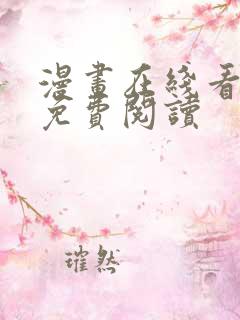 漫畫在綫看
免費閱讀
璀然